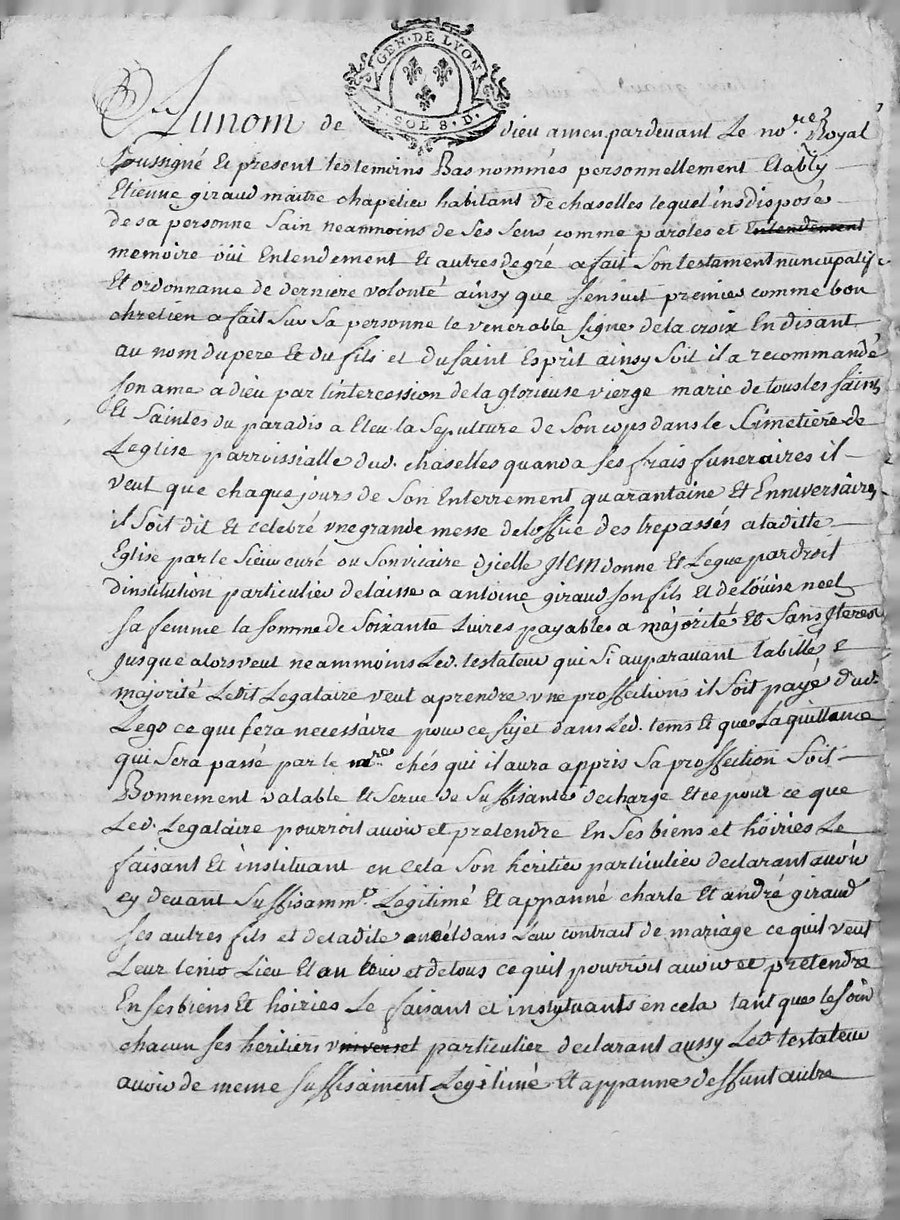 GEN. DE LYON
SOL 8. D.
Au nom de dieu amen pardevant Le no.re Royal
soussigné Et present les temoins Bas nommés personnellement Etably
Etienne giraud maitre chapelie habitant de chaselles lequel insdisposé
de sa personne Sain neamnoins de Ses Sens comme paroles et Entendement
memoire oüi Entendement Et autres degré a fait Son testament nuncupatif
Et ordonnance de derniere volonté ainsy que sensuit premier comme bon
chretien a fait Sur Sa personne le venerable signe de la croix En disant
au nom du pere Et du fils et du saint Esprit ainsy Soit il a recommandé
son ame a dieu par l'intercession de la glorieuse vierge marie de tous les saints
Et Saintes du paradis a Eleu la Sepulture de Son corps dans le Simetiére de
Leglise parroissialle dud. chaselles quand a ses frais funeraires il
veut que chaque jours de Son Enterrement quarantaine Et Enniversaire
il Soit dit Et celebré vne grande messe de loffice des trepassés a laditte
Eglise par le Sieur curé ou Son vicaire d'jcelle Jtem donne Et Legue par droit
d'institution particulier delaisse a antoine giraud son fils Et de loüise neel
sa femme la somme de Soixante Livres payables a majorité Et Sans Jterest
jusque alors veut neammoins Led. testateur qui Si auparauant labille E
majorité Ledit Legataire veut aprendre vne proffections il Soit payé dud.
Legs ce qui sera necessaire pour ce sujet dans Led. tems Et que La quittance
qui Sera passé par le m.re chés qui il aura appris Sa proffection Soit
Bonnement valable Et Serve de Suffisante decharge Et ce pour ce que
Led. Legataire pourroit auoir et pretendre En Ses biens et hoiries Le
faisant Et instituant en cela Son heritier particulier declarant auoir
cy devant Suffisamm.t Legitimé Et appanné charle Et andré giraud
ses autres fils et de ladite neel dans Leur contrait de mariage ce quil veut
Leur tenir Lieu Et au Leur et de tous ce quil pourroit auoir et pretendre
En ses biens Et hoiries Le faisant et instytuants en cela tant que le soin
chacun ses heritiers vniversel particulier declarant aussy Led testateur
auoir de meme suffisament Legitimé Et appanne deffunt autre